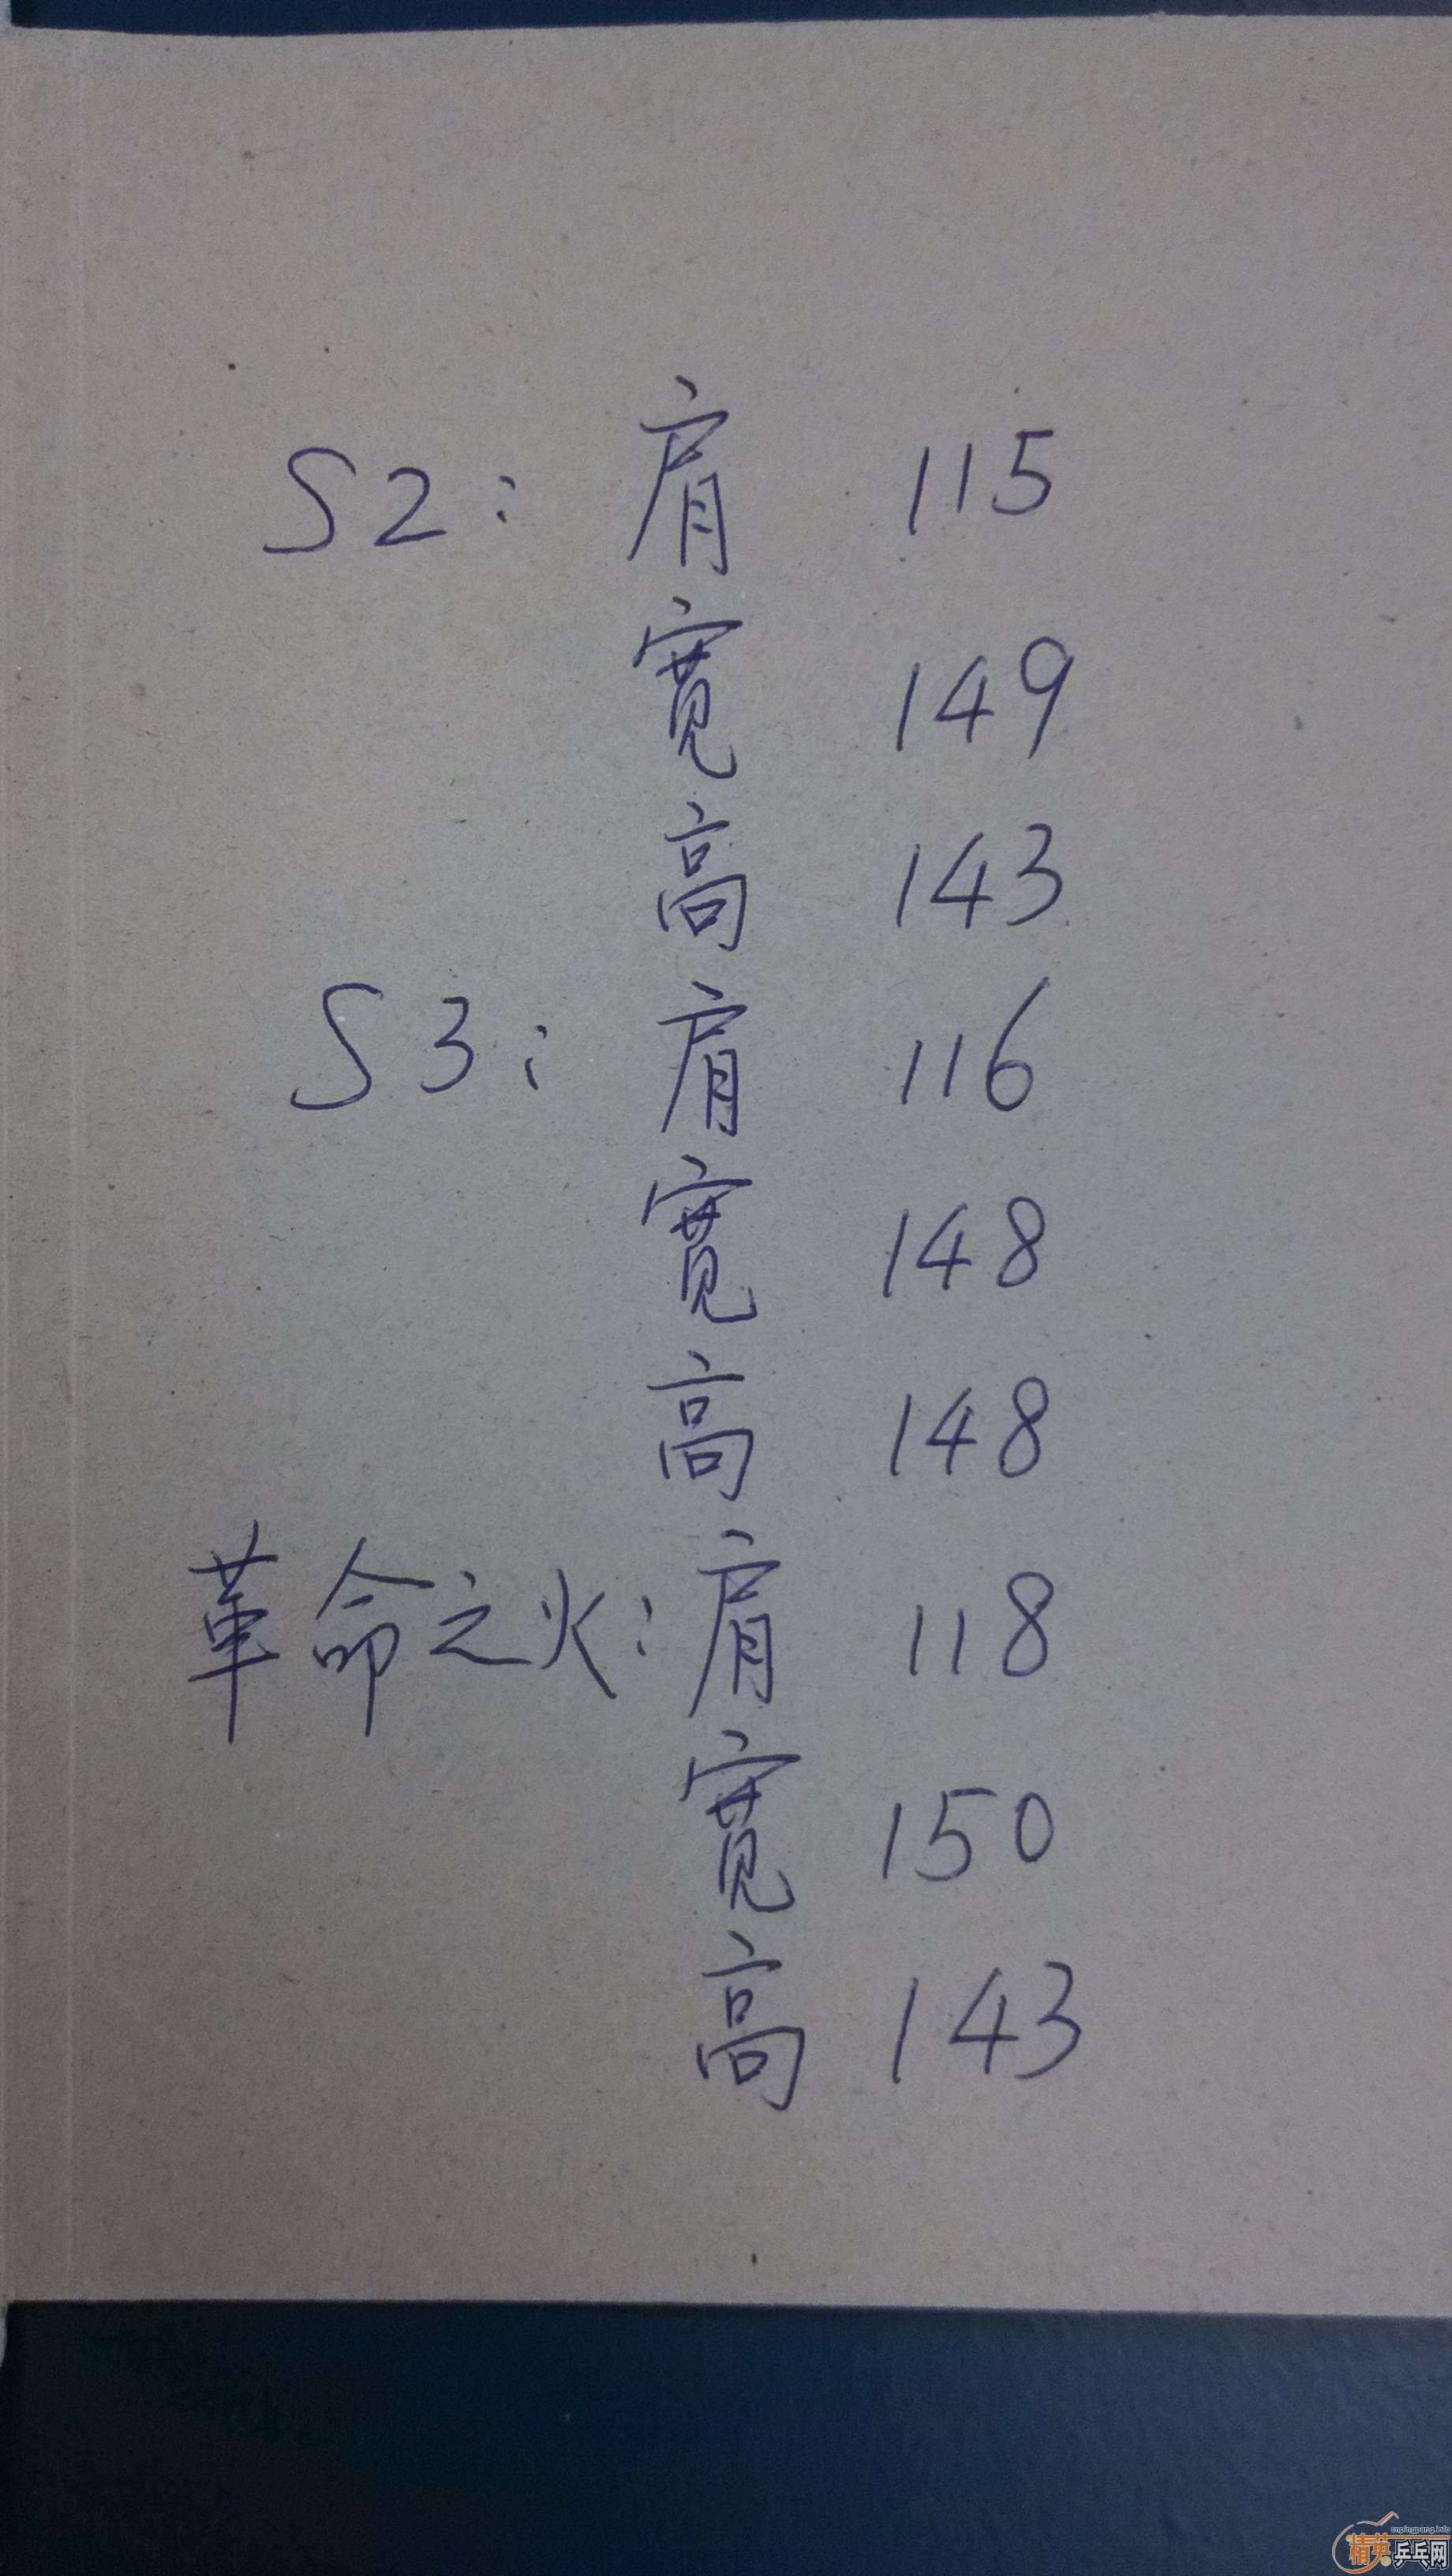 S2: 肩 115
宽 149
高 143
S3: 肩 116
宽 148
高 148
革命之火: 肩 118
宽 150
高 143
cnpingpang.info
精英乒乓网